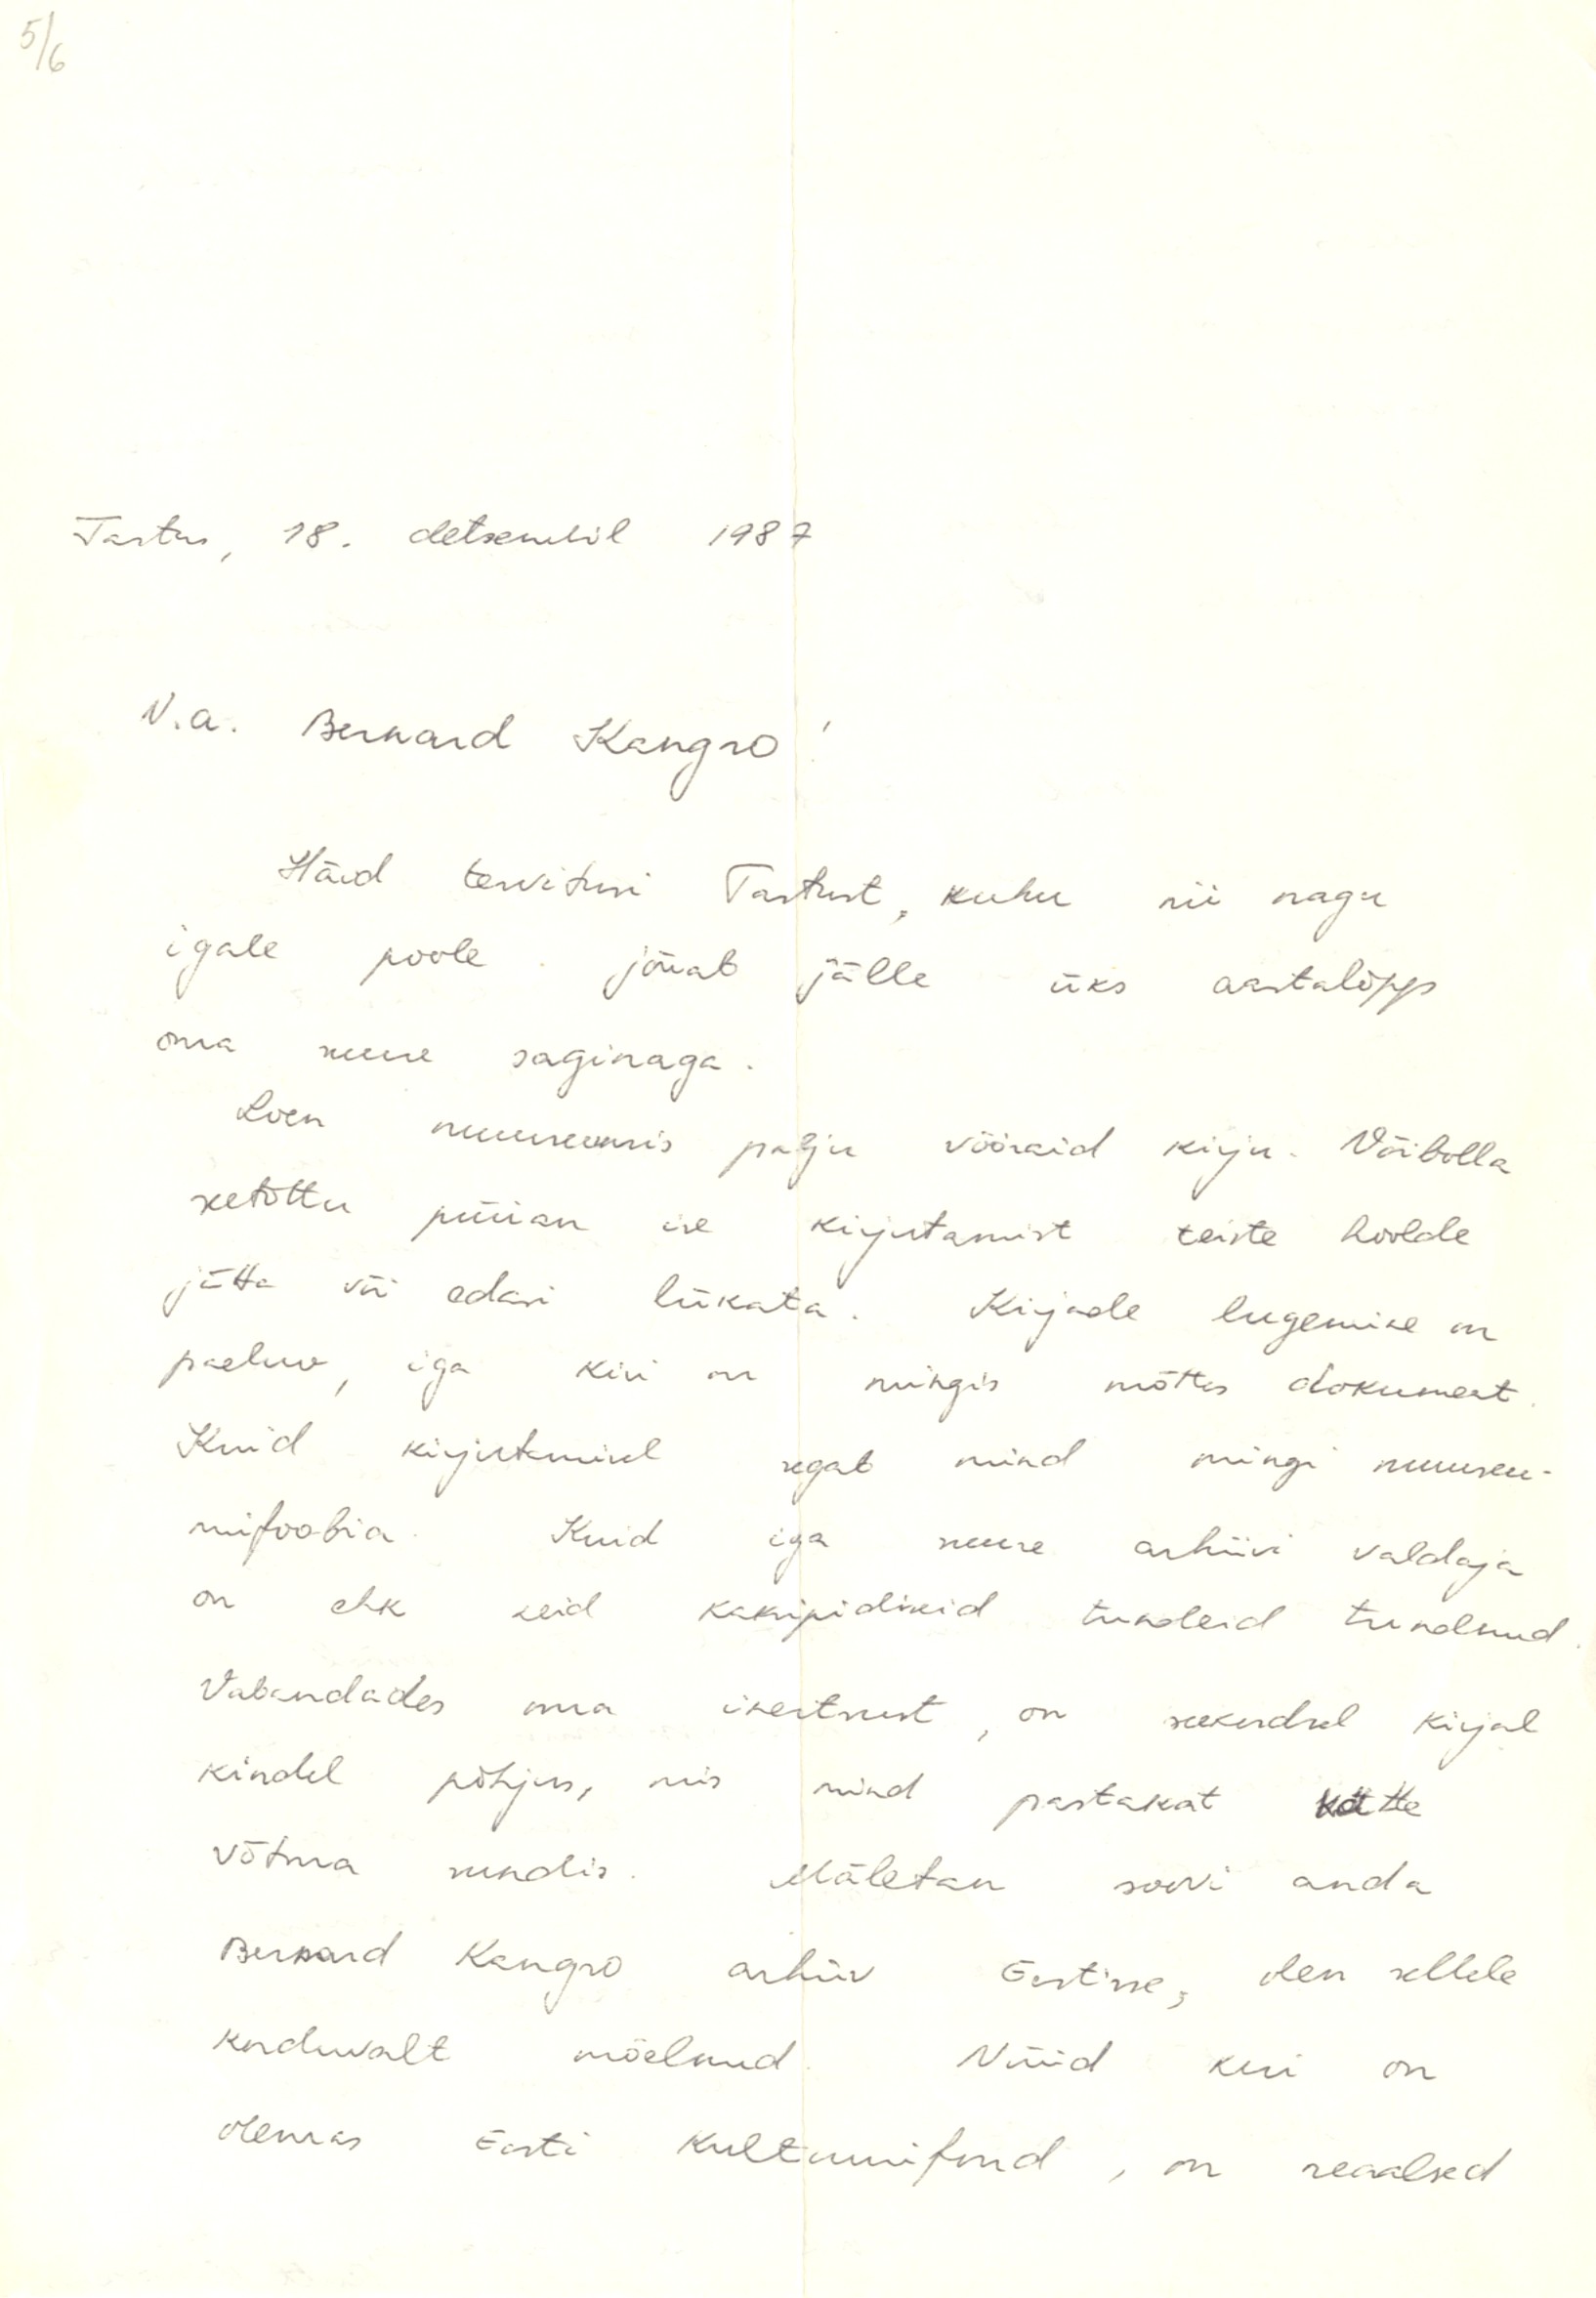 5/6
Tartus, 18. detsembril 1987
V.a. Bernard Kangro!
Häid tervitusi Tartust, kuhu nii nagu
igale poole jõuab jälle üks aastalõpp
oma suure saginaga.
Loen muuseumis palju võõraid kirju. Võibolla
seetõttu püüan ise kirjutamist teiste hoolde
jätta või edasi lükata. Kirjade lugemine on
paeluv, iga kiri on mingis mõttes dokument.
Kuid kirjutamisel segab mind mingi muuseu-
mifoobia. Kuid iga suure arhiivi valdaja
on ehk neid kaksipidiseid tundeid tundnud.
Vabandades oma inertsust, on seekordsel kirjal
kindel põhjus, mis mind pastakat kätte
võtma sundis. Mäletan soovi anda
Bernard Kangro arhiiv Eestisse, olen sellele
korduvalt mõelnud. Nüüd kui on
olemas Eesti Kultuurifond, on reaalsed